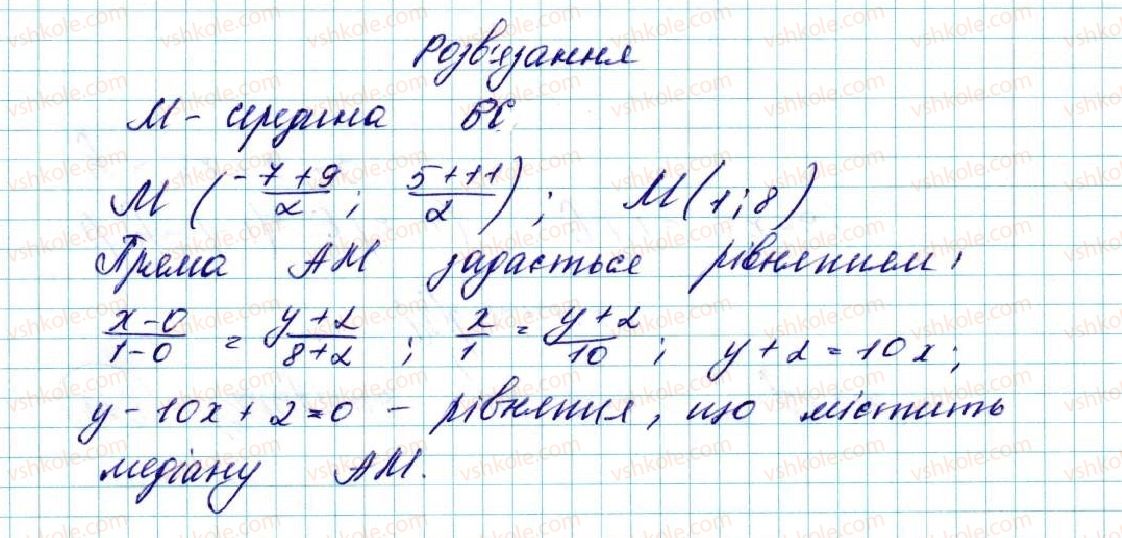 Розв'язання
М - середина ВС.
М (-7+9/2; 5+11/2); М(1;8)
Пряма АМ задається рівнянням:
x-0/1-0 = y+2/8+2; x/1 = y+2/10; y+2=10x;
y-10x+2=0 - рівняння, що містить
медіану АМ.